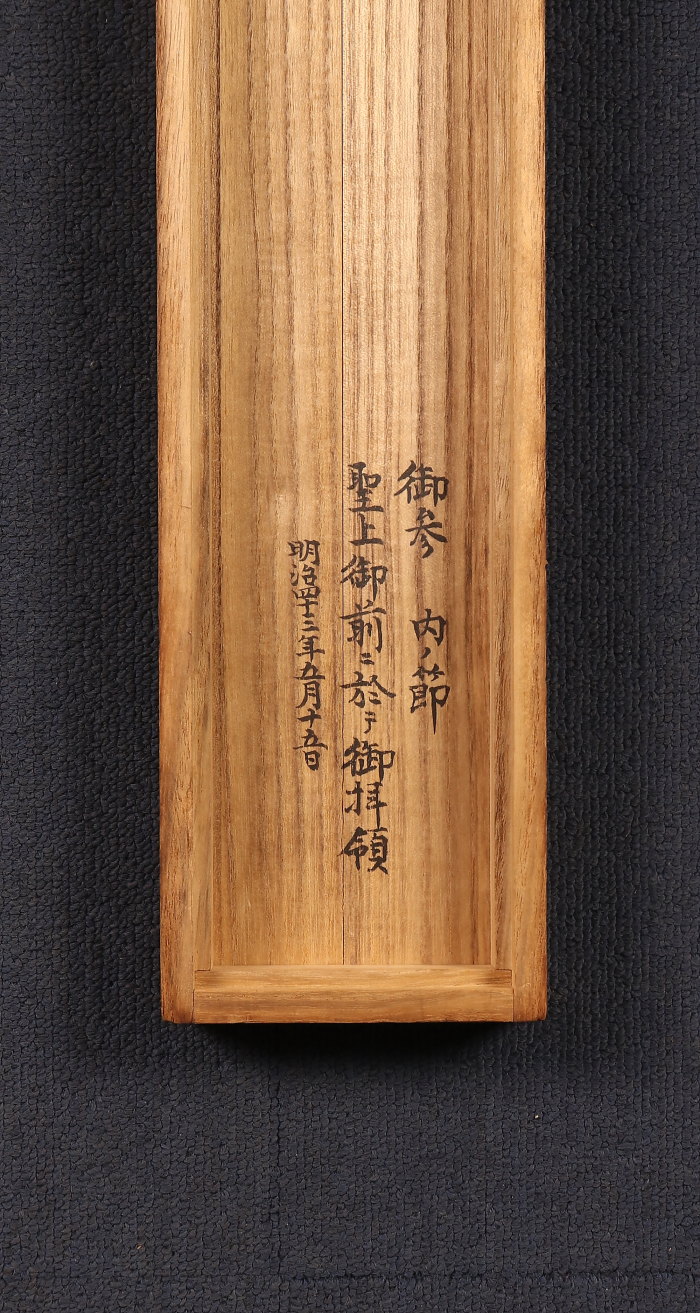 御参　内ノ節
聖上御前ニ於テ御拝領
明治四十三年五月十五日